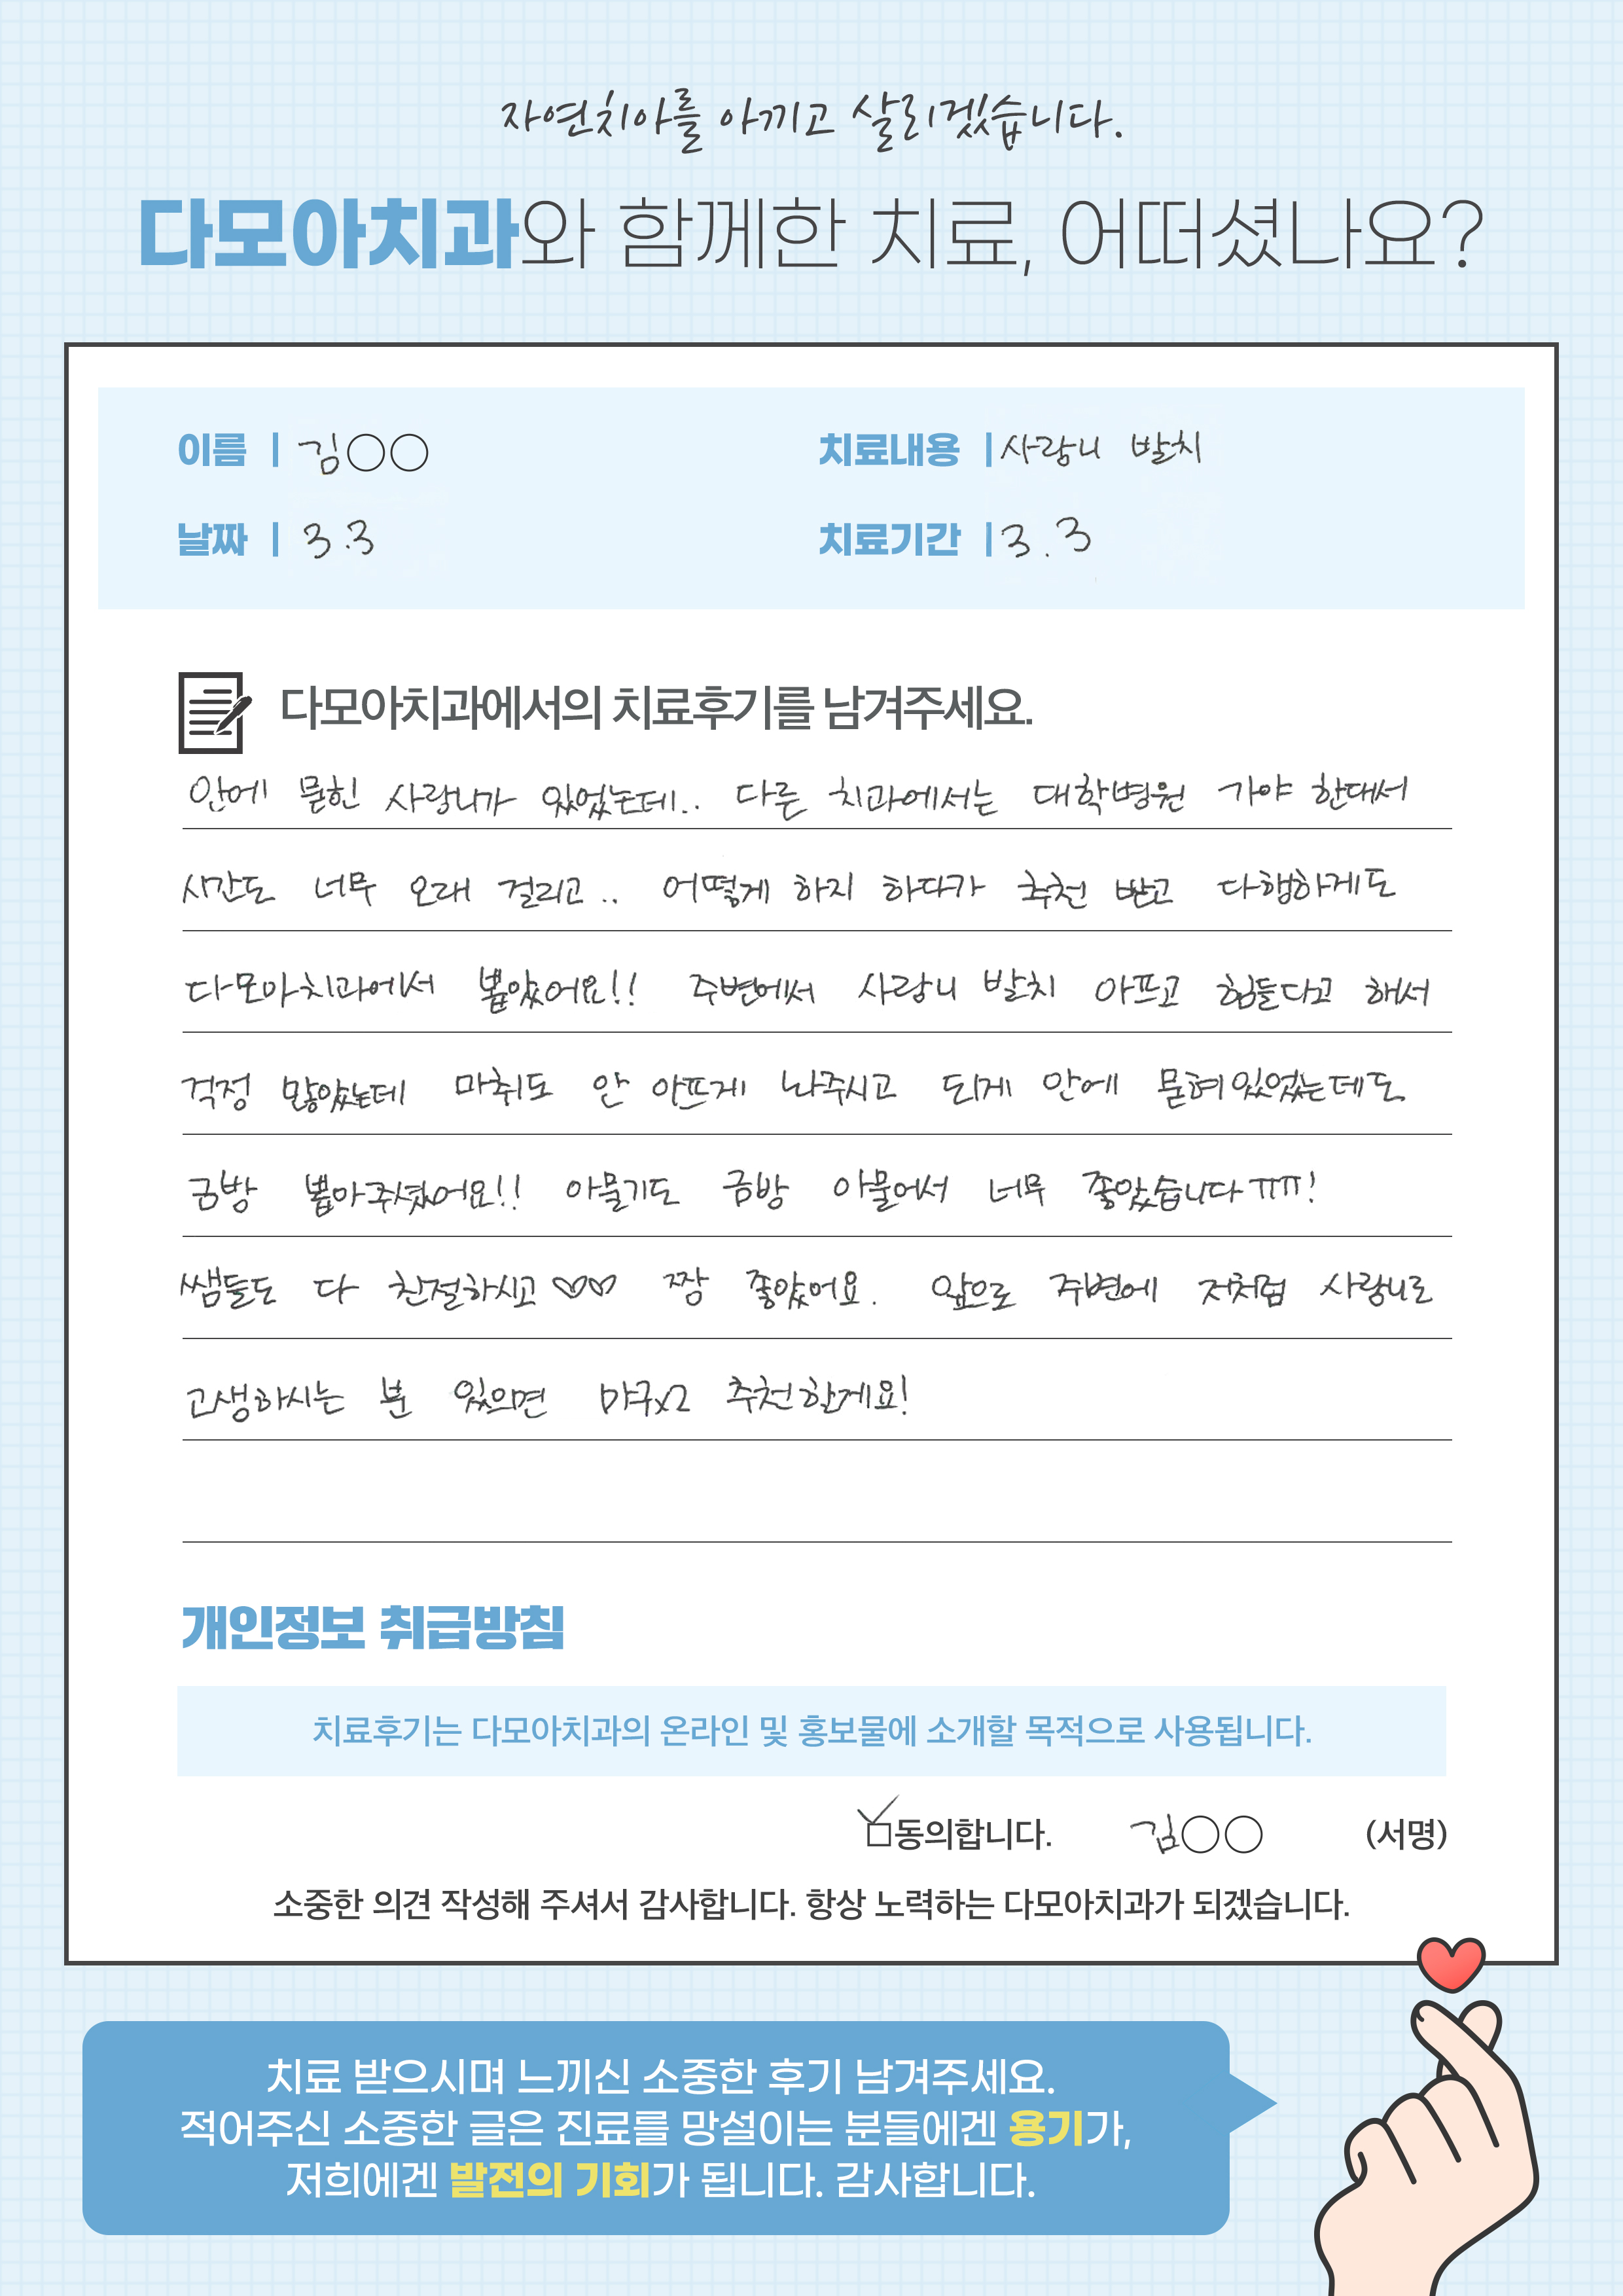 자연치아를 아끼고 살리겠습니다.
다모아치과와 함께한 치료, 어떠셨나요?
이름 | 김○○
치료내용 | 사랑니 발치
날짜 | 3.3
치료기간 | 3.3
다모아치과에서의 치료후기를 남겨주세요.
안에 묻힌 사랑니가 있었는데.. 다른 치과에서는 대학병원 가야 한대서
시간도 너무 오래 걸리고.. 어떻게 하지 하다가 추천 받고 다행하게도
다모아치과에서 뽑았어요!! 주변에서 사랑니 발치 아프고 힘들다고 해서
걱정 많았는데 마취도 안 아프게 놔주시고 되게 안에 묻혀있었는데도
금방 뽑아주셨어요!! 아물기도 금방 아물어서 너무 좋았습니다ㅠㅠ!
쌤들도 다 친절하시고♡♡ 짱 좋았어요. 앞으로 주변에 저처럼 사랑니로
고생하시는 분 있으면 마구x2 추천할게요!
개인정보 취급방침
치료후기는 다모아치과의 온라인 및 홍보물에 소개할 목적으로 사용됩니다.
동의합니다. 김○○ (서명)
소중한 의견 작성해 주셔서 감사합니다. 항상 노력하는 다모아치과가 되겠습니다.
치료 받으시며 느끼신 소중한 후기 남겨주세요.
적어주신 소중한 글은 진료를 망설이는 분들에겐 용기가,
저희에겐 발전의 기회가 됩니다. 감사합니다.